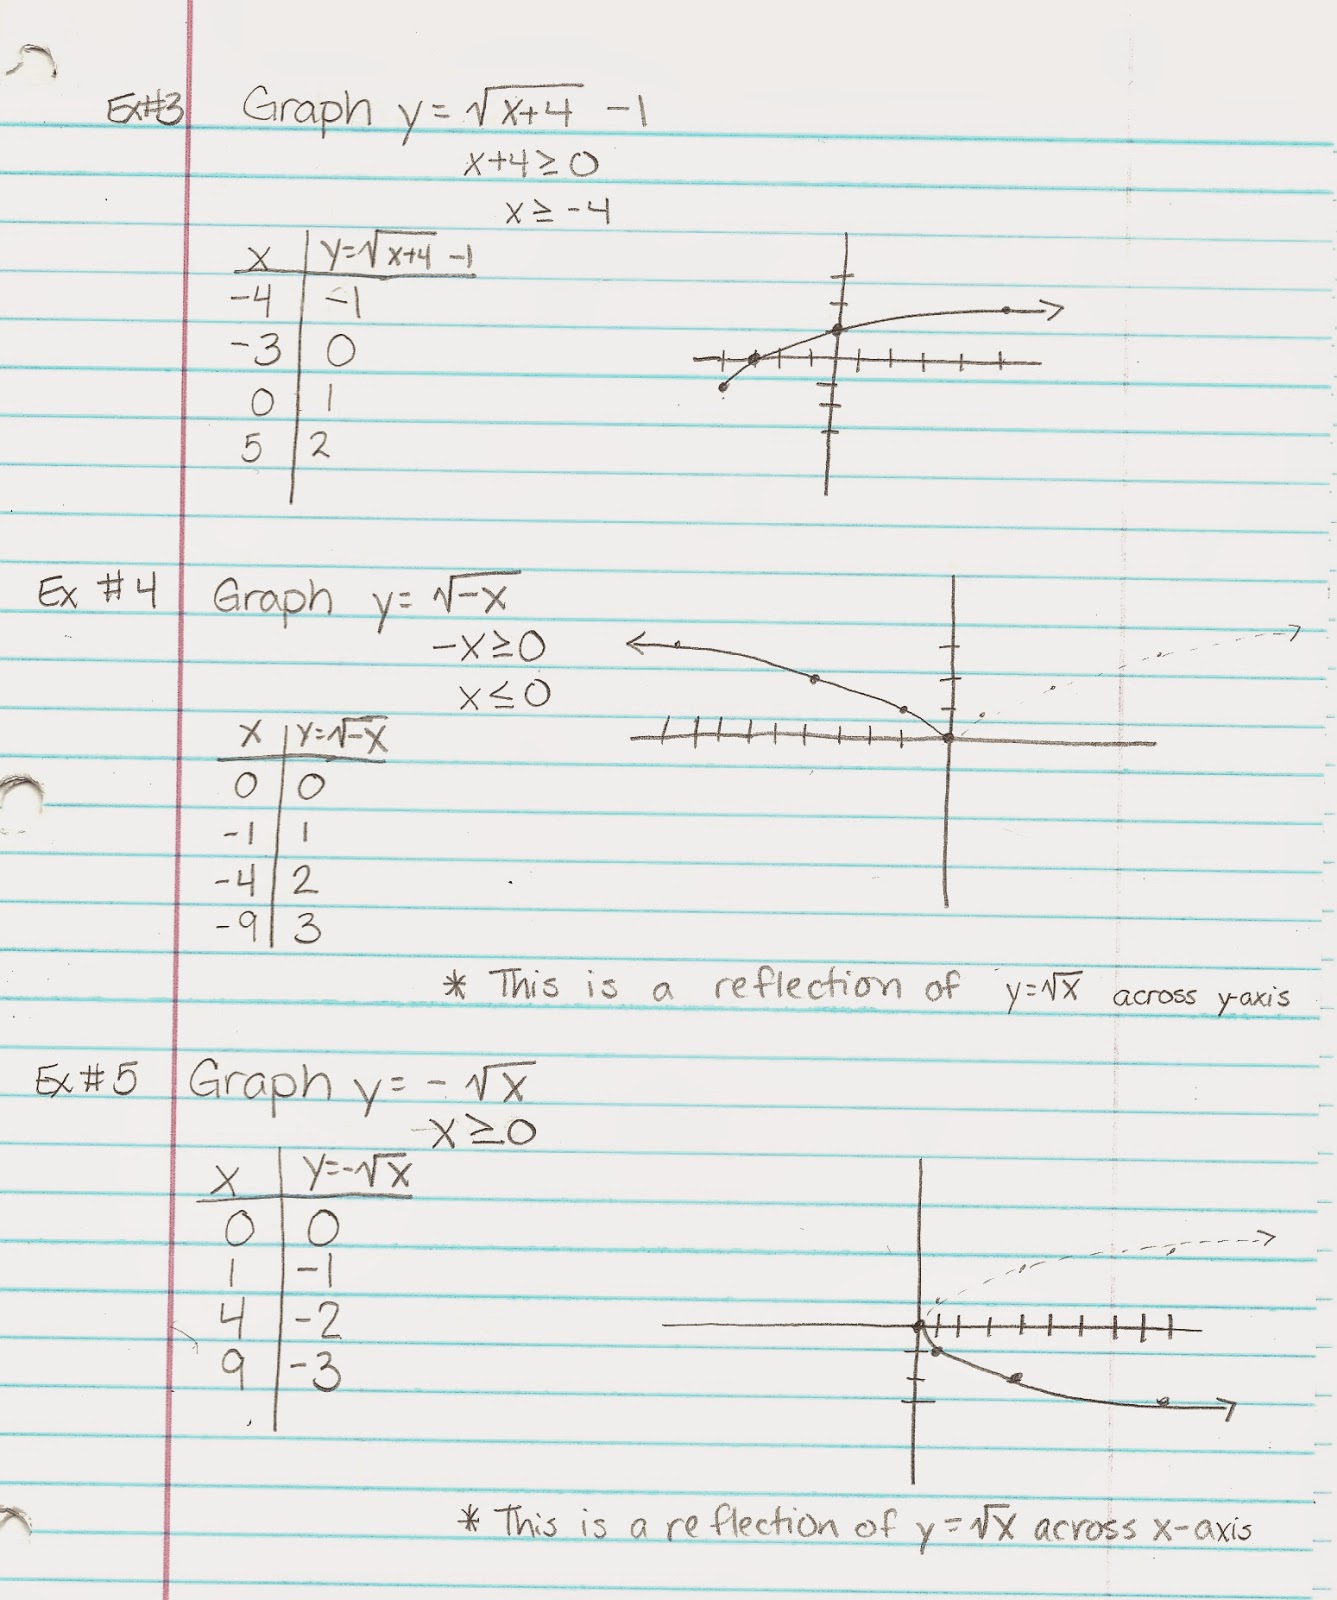 Ex#3 Graph y = √x+4 -1
x+4 ≥ 0
x ≥ -4
x y=√x+4 -1
-4 -1
-3 0
0 1
5 2
Ex #4 Graph y = √-x
-x ≥ 0
x ≤ 0
x y=√-x
0 0
-1 1
-4 2
-9 3
* This is a reflection of y=√x across y-axis
Ex #5 Graph y = - √x
x ≥ 0
x y=-√x
0 0
1 -1
4 -2
9 -3
* This is a reflection of y=√x across x-axis